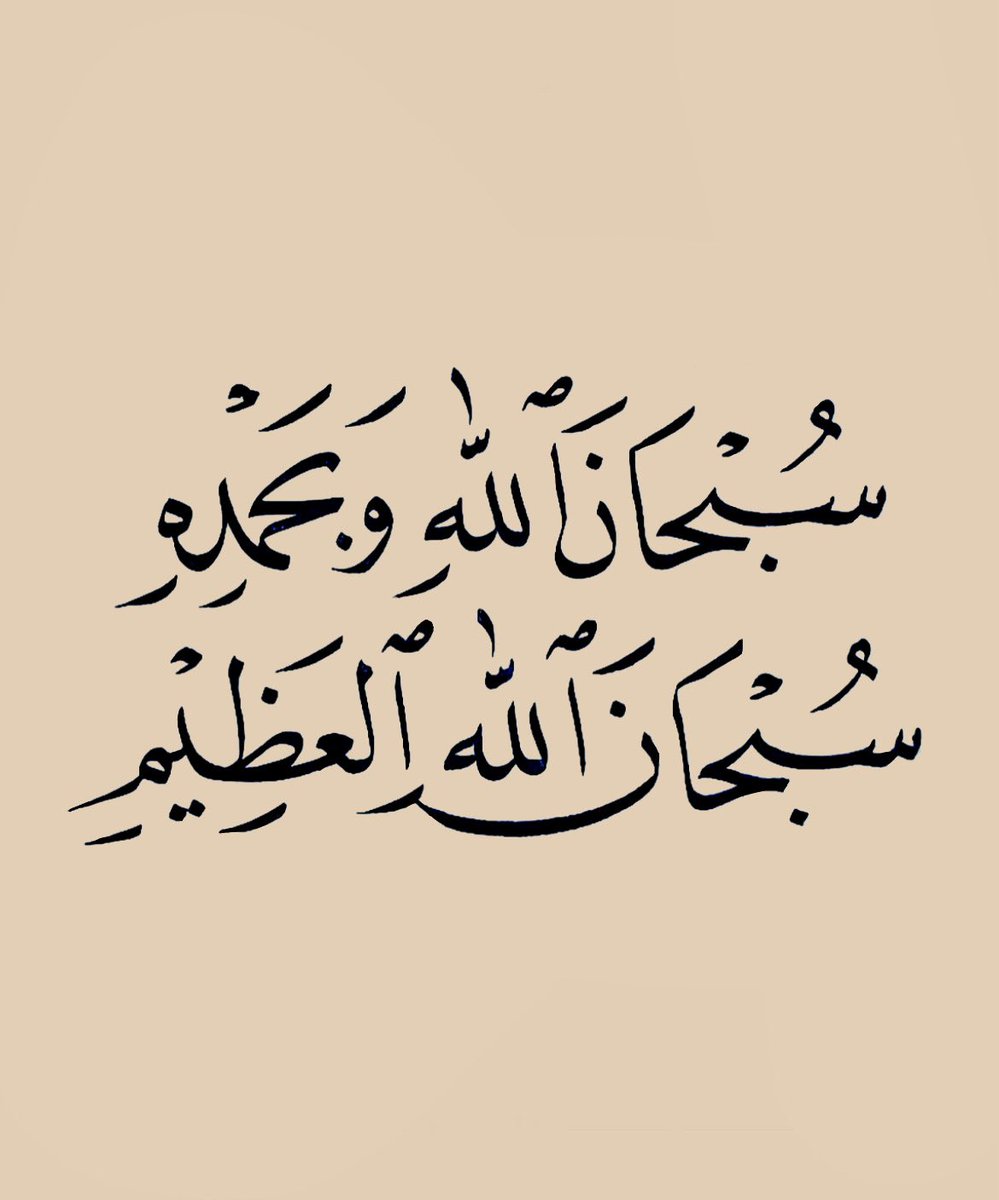 سُبْحَانَ ٱللّٰهِ وَبِحَمْدِهِ
سُبْحَانَ ٱللّٰهِ ٱلْعَظِيْمِ